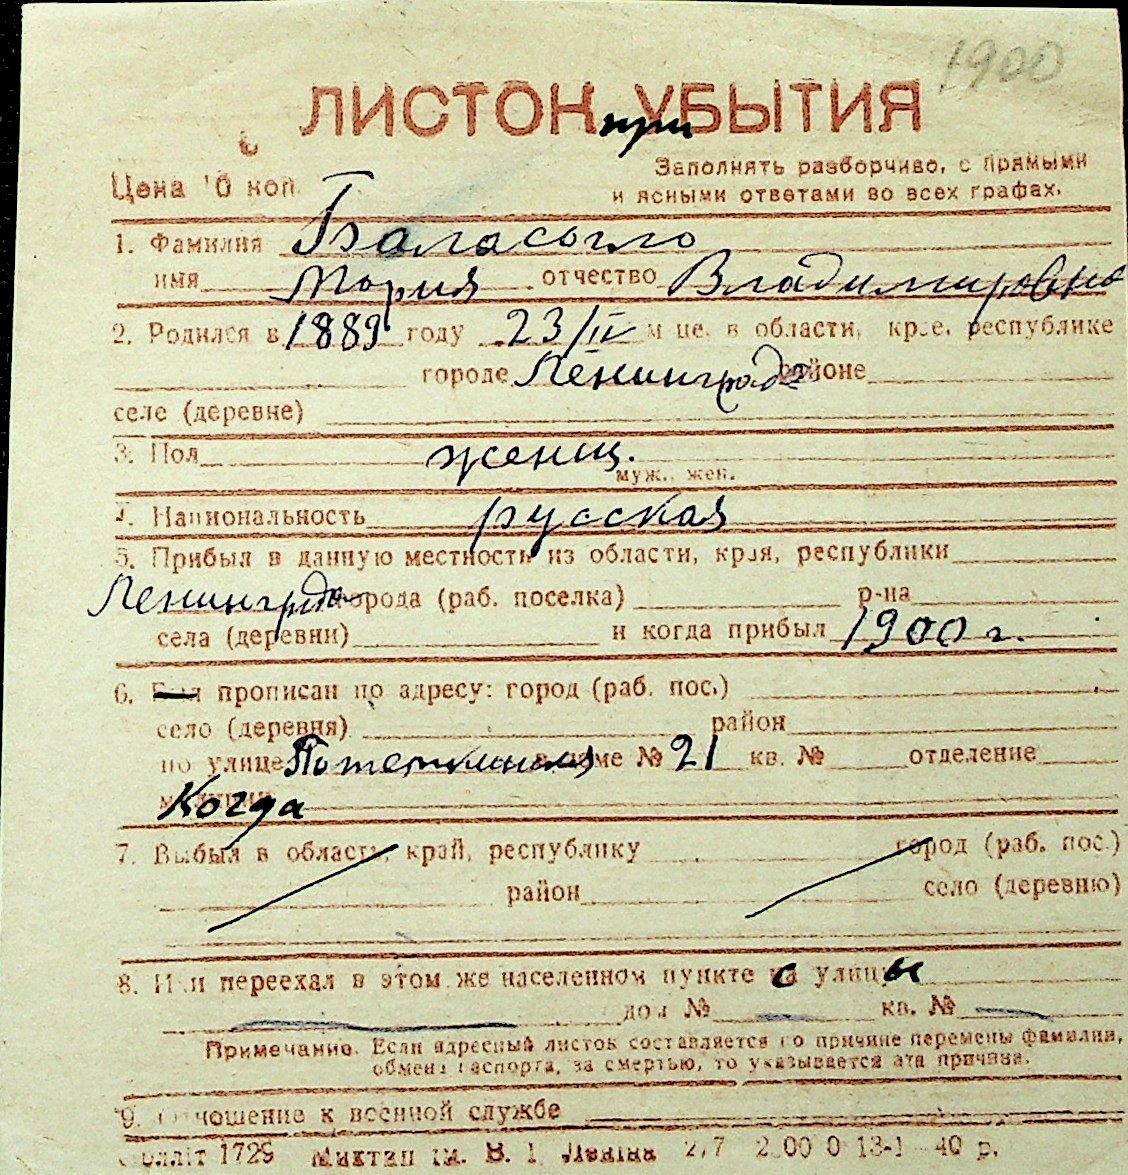 1900
ЛИСТОН при УБЫТИЯ
Цена 10 коп. Заполнять разборчиво, с прямыми
и ясными ответами во всех графах.
1. Фамилия Баласогло
имя Мария отчество Владимировна
2. Родился в 1889 году 23/IV м-це, в области, крае, республике
городе Ленинграде районе
селе (деревне)
3. Пол женщ.
муж., жен.
4. Национальность русская
5. Прибыл в данную местность из области, края, республики
Ленинграда города (раб. поселка) р-на
села (деревни) и когда прибыл 1900 г.
6. Был прописан по адресу: город (раб. пос.)
село (деревня) район
по улице Потемкинская в доме № 21 кв. № отделение
милиции Когда
7. Выбыл в область, край, республику город (раб. пос.)
район село (деревню)
8. Или переехал в этом же населенном пункте с улицы
дом № кв. №
Примечание. Если адресный листок составляется по причине перемены фамилии,
обмена паспорта, за смертью, то указывается эта причина.
9. Отношение к военной службе
1729 ім. В. І. Леніна 2.00 0 13-1 40 р.